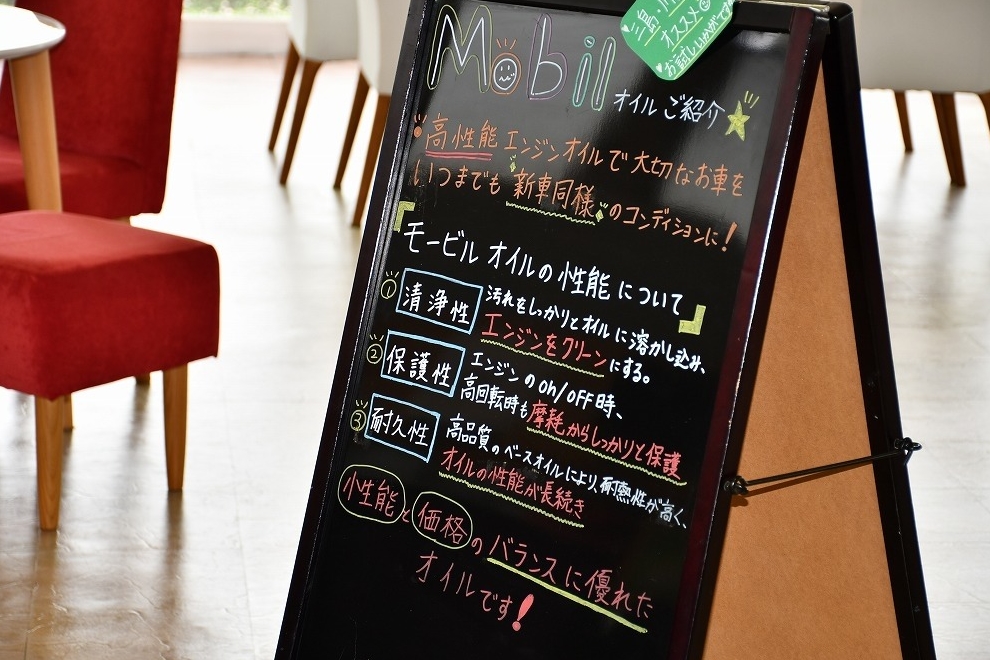 Mobil
三島
オススメ
お試しいかがですか
オイル ご紹介
高性能 エンジンオイルで 大切なお車を
いつまでも 新車同様 のコンディションに!
「モービル オイルの性能 について」
① 清浄性 汚れをしっかりとオイルに溶かし込み、
エンジンをクリーンにする。
② 保護性 エンジンの on/OFF時、
高回転時も摩耗からしっかりと保護
③ 耐久性 高品質のベースオイルにより、耐熱性が高く、
オイルの性能が長続き
性能と価格のバランスに優れた
オイルです!